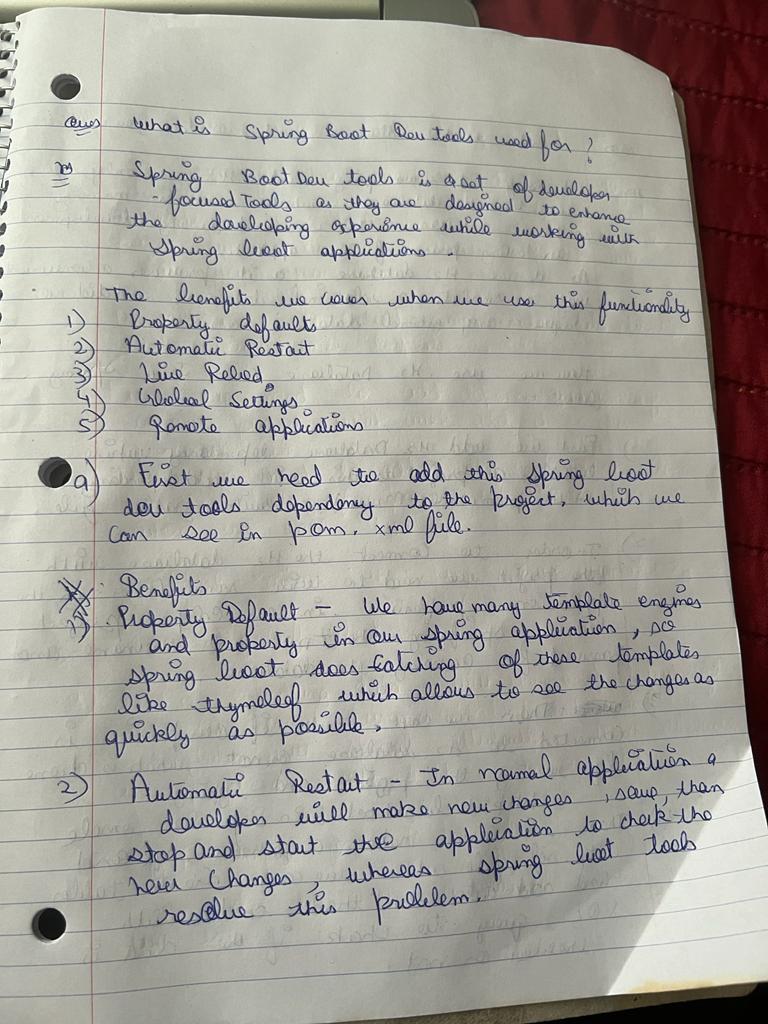 Ques What is Spring Boot Dev tools used for?
Spring Boot Dev tools is a set of developer
- focused Tools as they are designed to enhance
the developing experience while working with
Spring boot applications.
The benefits we cover when we use this functionality
1) Property defaults
2) Automatic Restart
3) Live Reload
4) Global Settings
5) Remote applications
a) First we need to add this Spring boot
dev tools dependency to the project, which we
can see in pom. xml file.
Benefits
1) Property Default - We have many template engines
and property in our spring application, so
spring boot does catching of these templates
like thymeleaf which allows to see the changes as
quickly as possible.
2) Automatic Restart - In normal application a
developer will make new changes, save, than
stop and start the application to check the
new changes, whereas spring boot tools
resolve this problem.